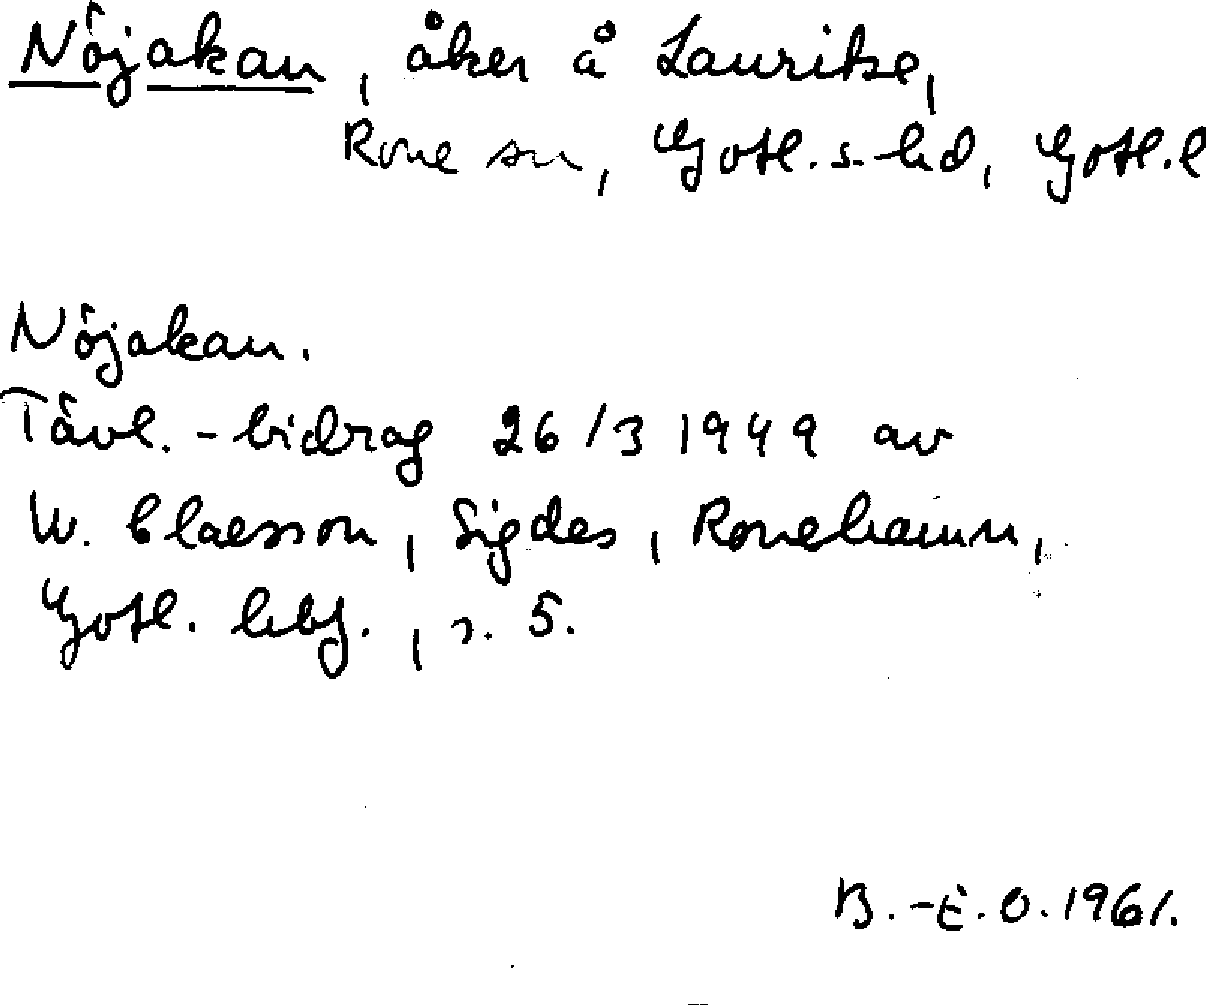 Nöjakan, åker å Laurikse,
Rone sn, Gotl. s. hd, Gotl. l
Nöjakan.
Tävl.-bidrag 26/3 1949 av
W. Claesson, Sigdes, Ronehamn,
Gotl. hbf., s. 5.
B.-E. O. 1961.